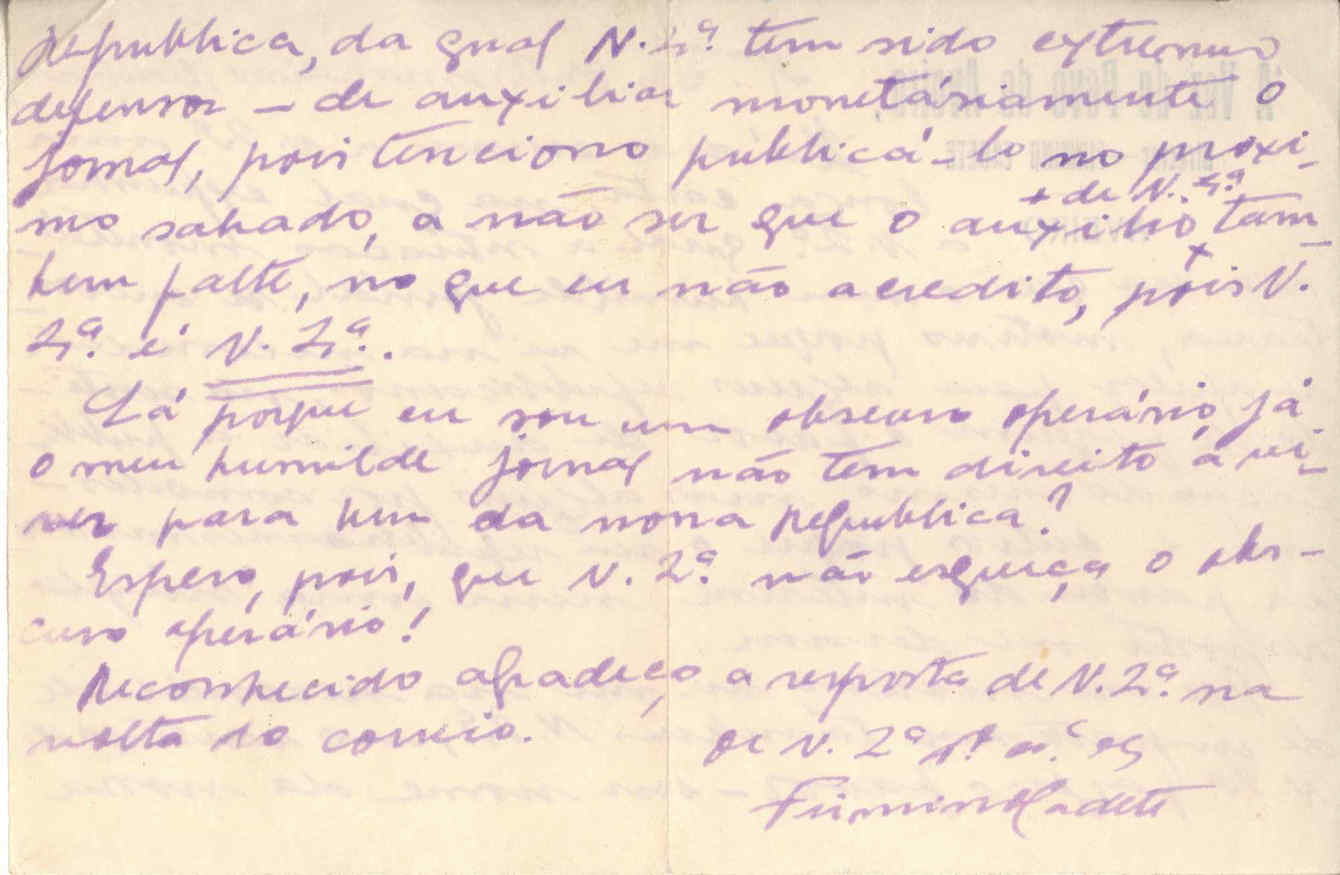 Republica, da qual V. Exª. tem sido extremuo
defensor – de auxiliar monetáriamente o
jornal, pois tenciono publicá-lo no proxi-
mo sabado, a não ser que o auxilio + de V. Exª. + tam-
bem falte, no que eu não acredito, pois V.
Exª. é V. Exª..
Lá porque eu sou um obscuro operário, já
o meu humilde jornal não tem direito á vi-
ver para bem da nossa Republica?
Espero, pois, que V. Exª. não esqueça o obs-
curo operário!
Reconhecido agradeço a resposta de V. Exª. na
volta do correio.
De V. Exª
Firmino Cadete